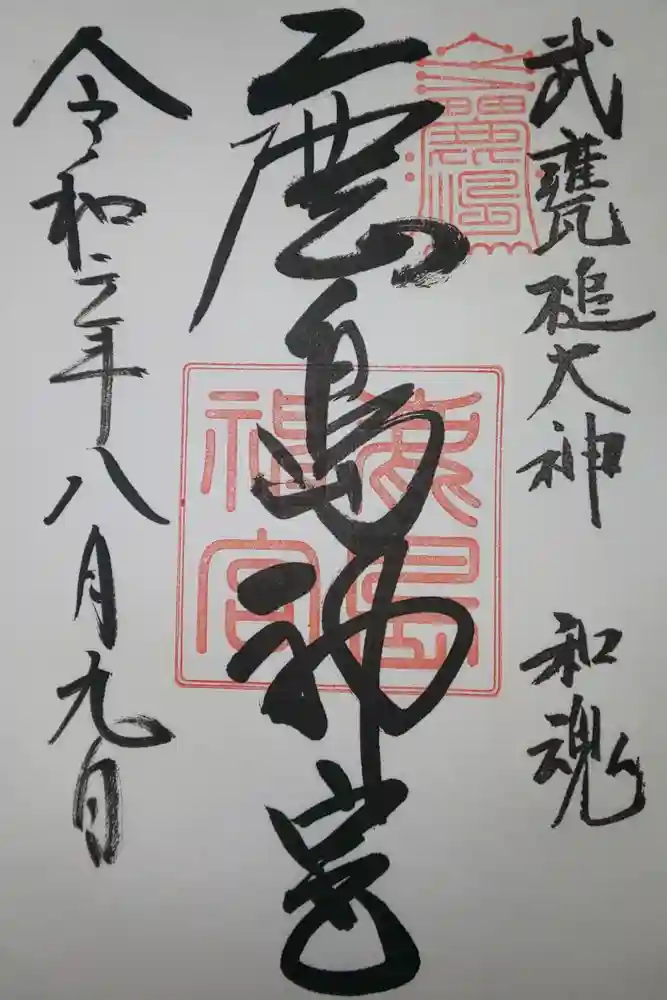 武甕槌大神 和魂
鹿島神宮
令和二年八月九日
鹿島
神宮